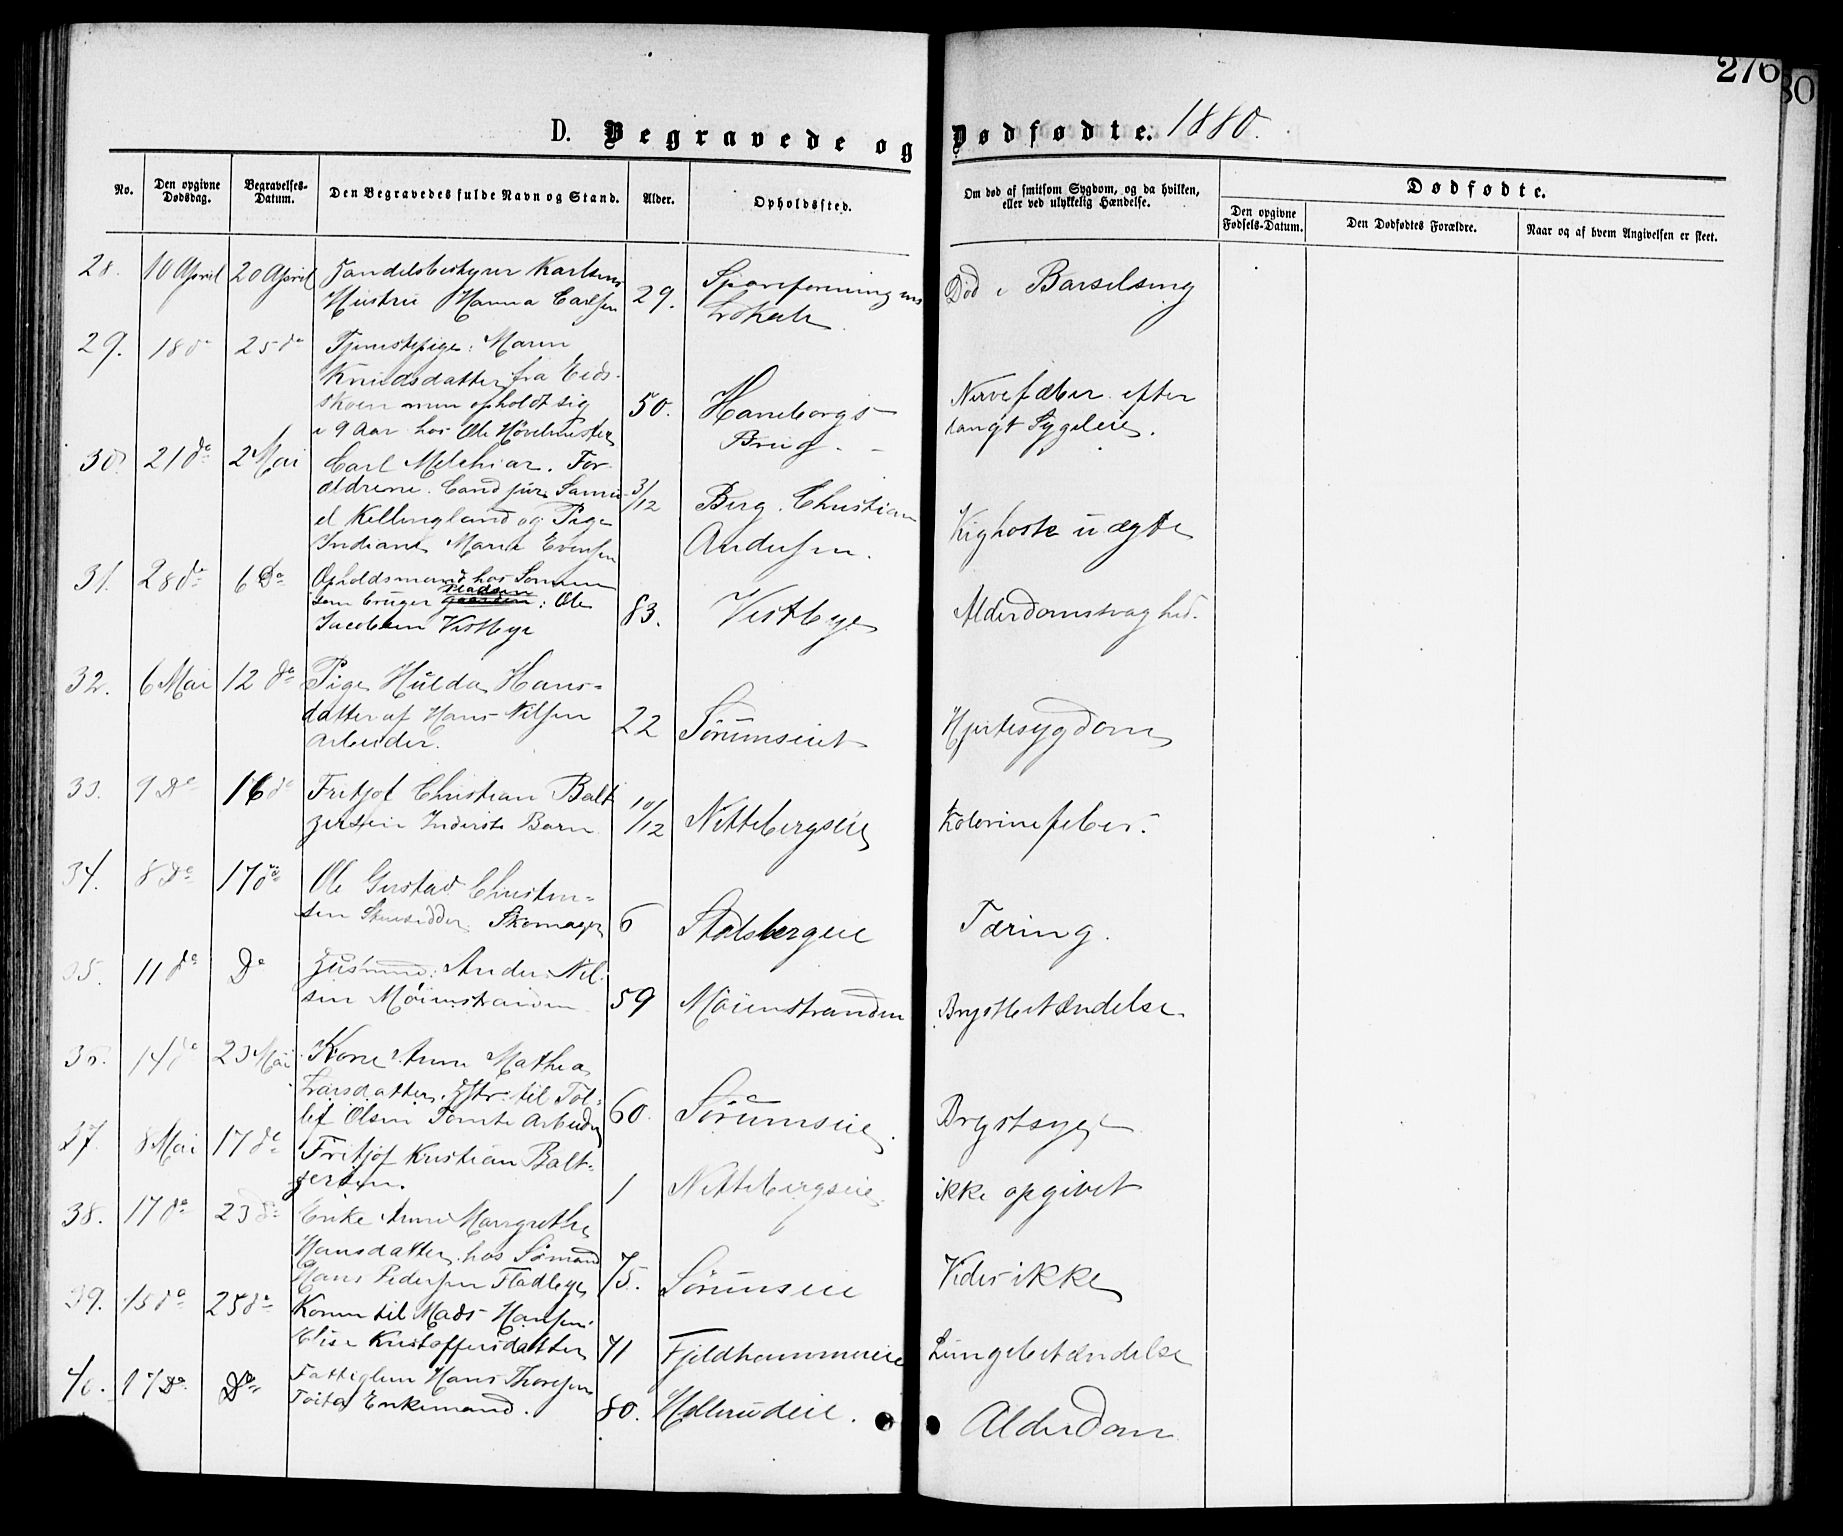 276
80
D. Begravede og Dødfødte. 1880.
No.
Den opgivne Dødsdag.
Begravelses-Datum.
Den Begravedes fulde Navn og Stand.
Alder.
Opholdssted.
Om død af smitsom Sygdom, og da hvilken,
eller ved ulykkelig Hændelse.
Dødfødte.
Den opgivne Fødsels-Datum.
Den Dødfødtes Forældre.
Naar og af hvem Angivelsen er skeet.
28. 10 April 20 April Handelsbestyrer Karlsens
Hustru Hanna Carlsen 29. Spareforeningens
Lokale
Død i Barselseng
29. 18 do 25 do Tjenestepige: Maren
Knudsdatter fra Eids-
skoen men opholdt sig
i 9 Aar hos Ole Høvelmester
50. Haneborgs
Brug.
Nervefæber efter
langt Sygeleie.
30. 21 do 2 Mai Carl Melchior. For-
ældrene. Cand jur. Samu-
el Kellingland og Pige
Indiane Marie Evensen
3/12 Berg. Christian
Andersen.
Kighoste uægte
31. 28 do 6 Do Opholdsmand hos Sønnen
som bruger gaarden Pladsen: Ole
Jacobsen Vestbye
83. Vestbye
Alderdomssvaghed.
32. 6 Mai 12 do Pige Hulda Hans-
datter af Hans Nilsen
Arbeider.
22 Sørumseiet
Hjertesygdom
33. 9 Do 16 do Fritjof Christian Balt
zersen Inderste Barn
10/12 Nittebergseie
Kolerinefeber.
34. 8 Do 17 do Ole Gustav Christen-
sen Skomager
6 Stalsbergeie
Tæring.
35. 11 do Do Husmand: Anders Nil-
sen Møienstranden
59 Møienstranden
Brystbetændelse
36. 14 do 23 Mai Kone Anne Mathea
Larsdatter, Hstr. til Tol-
lef Olsen Tomte Arbeider
60. Sørumseie.
Brystsyge
37. 8 Mai 17 do Fritjof Kristian Balt-
zersen.
1 Nittebergseie.
ikke opgivet
38. 17 do 23 do Enke Anne Margrethe
Hansdatter hos Sømand
Hans Pedersen Fladbye
75. Sørumseie
Vides ikke
39. 15 do 25 do Konen til Mads Hansen
Elise Kristoffersdatter
71 Fjeldhammereie
Lungebetændelse
40. 17 Do. Do Fattiglem Hans Thoresen
Toita Enkemand.
80. Hellerudeie.
Alderdom